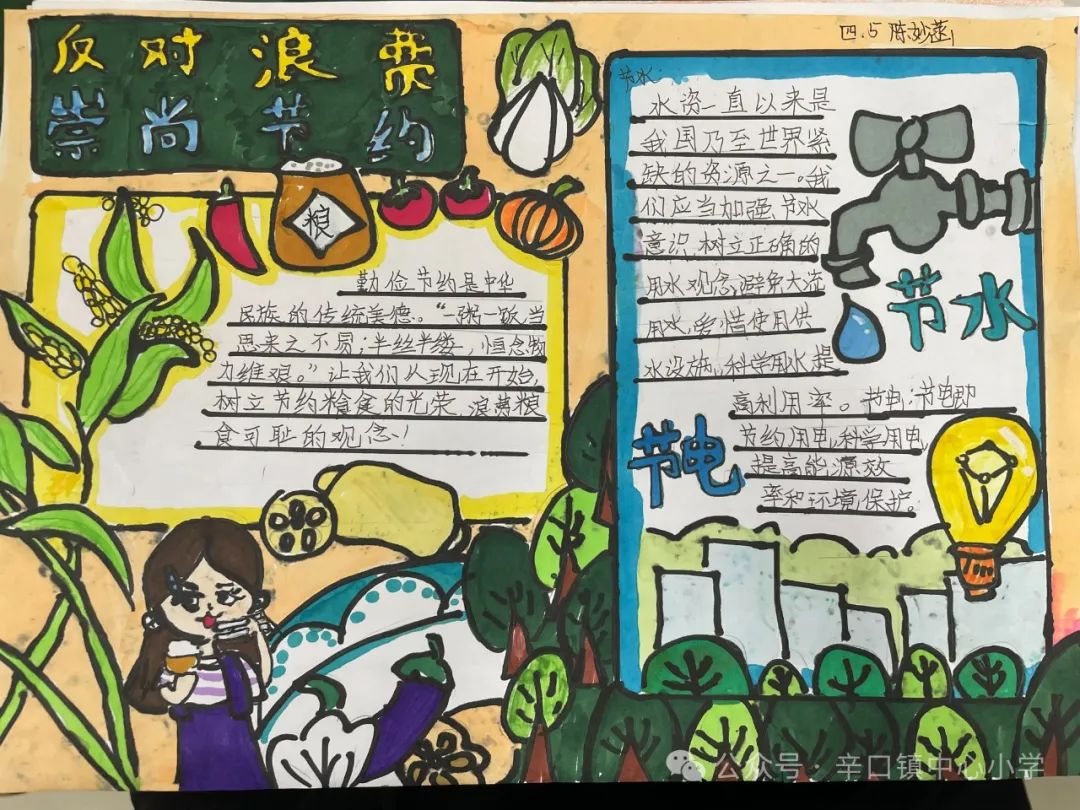 反对浪费
崇尚节约
四.5 陈妙菡
粮
勤俭节约是中华
民族的传统美德。“一粥一饭,当
思来之不易;半丝半缕,恒念物
力维艰。”让我们从现在开始,
树立节约粮食的光荣,浪费粮
食可耻的观念!
节水:
水资一直以来是
我国乃至世界紧
缺的资源之一。我
们应当加强节水
意识,树立正确的
用水观念,避免大流
用水,爱惜使用供
水设施,科学用水,提
高利用率。节电:节电即
节约用电,科学用电,
提高能源效
率和环境保护。
节水
节电
公众号·辛口镇中心小学